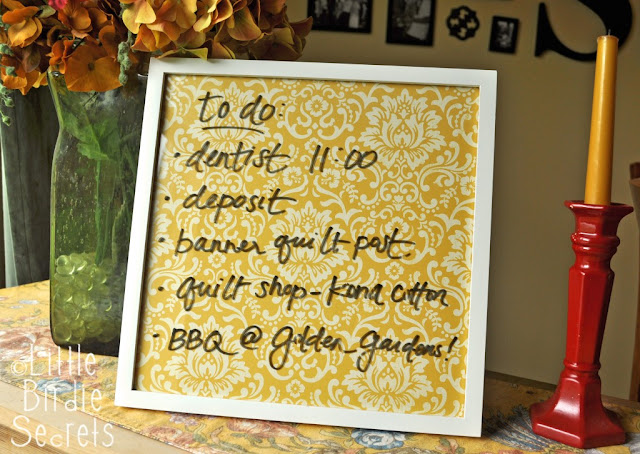 to do:
• dentist 11:00
• deposit
• banner quilt post
• quilt shop - Kona cotton
• BBQ @ Gilden_Gardens!
S
© Little
Birdie
Secrets